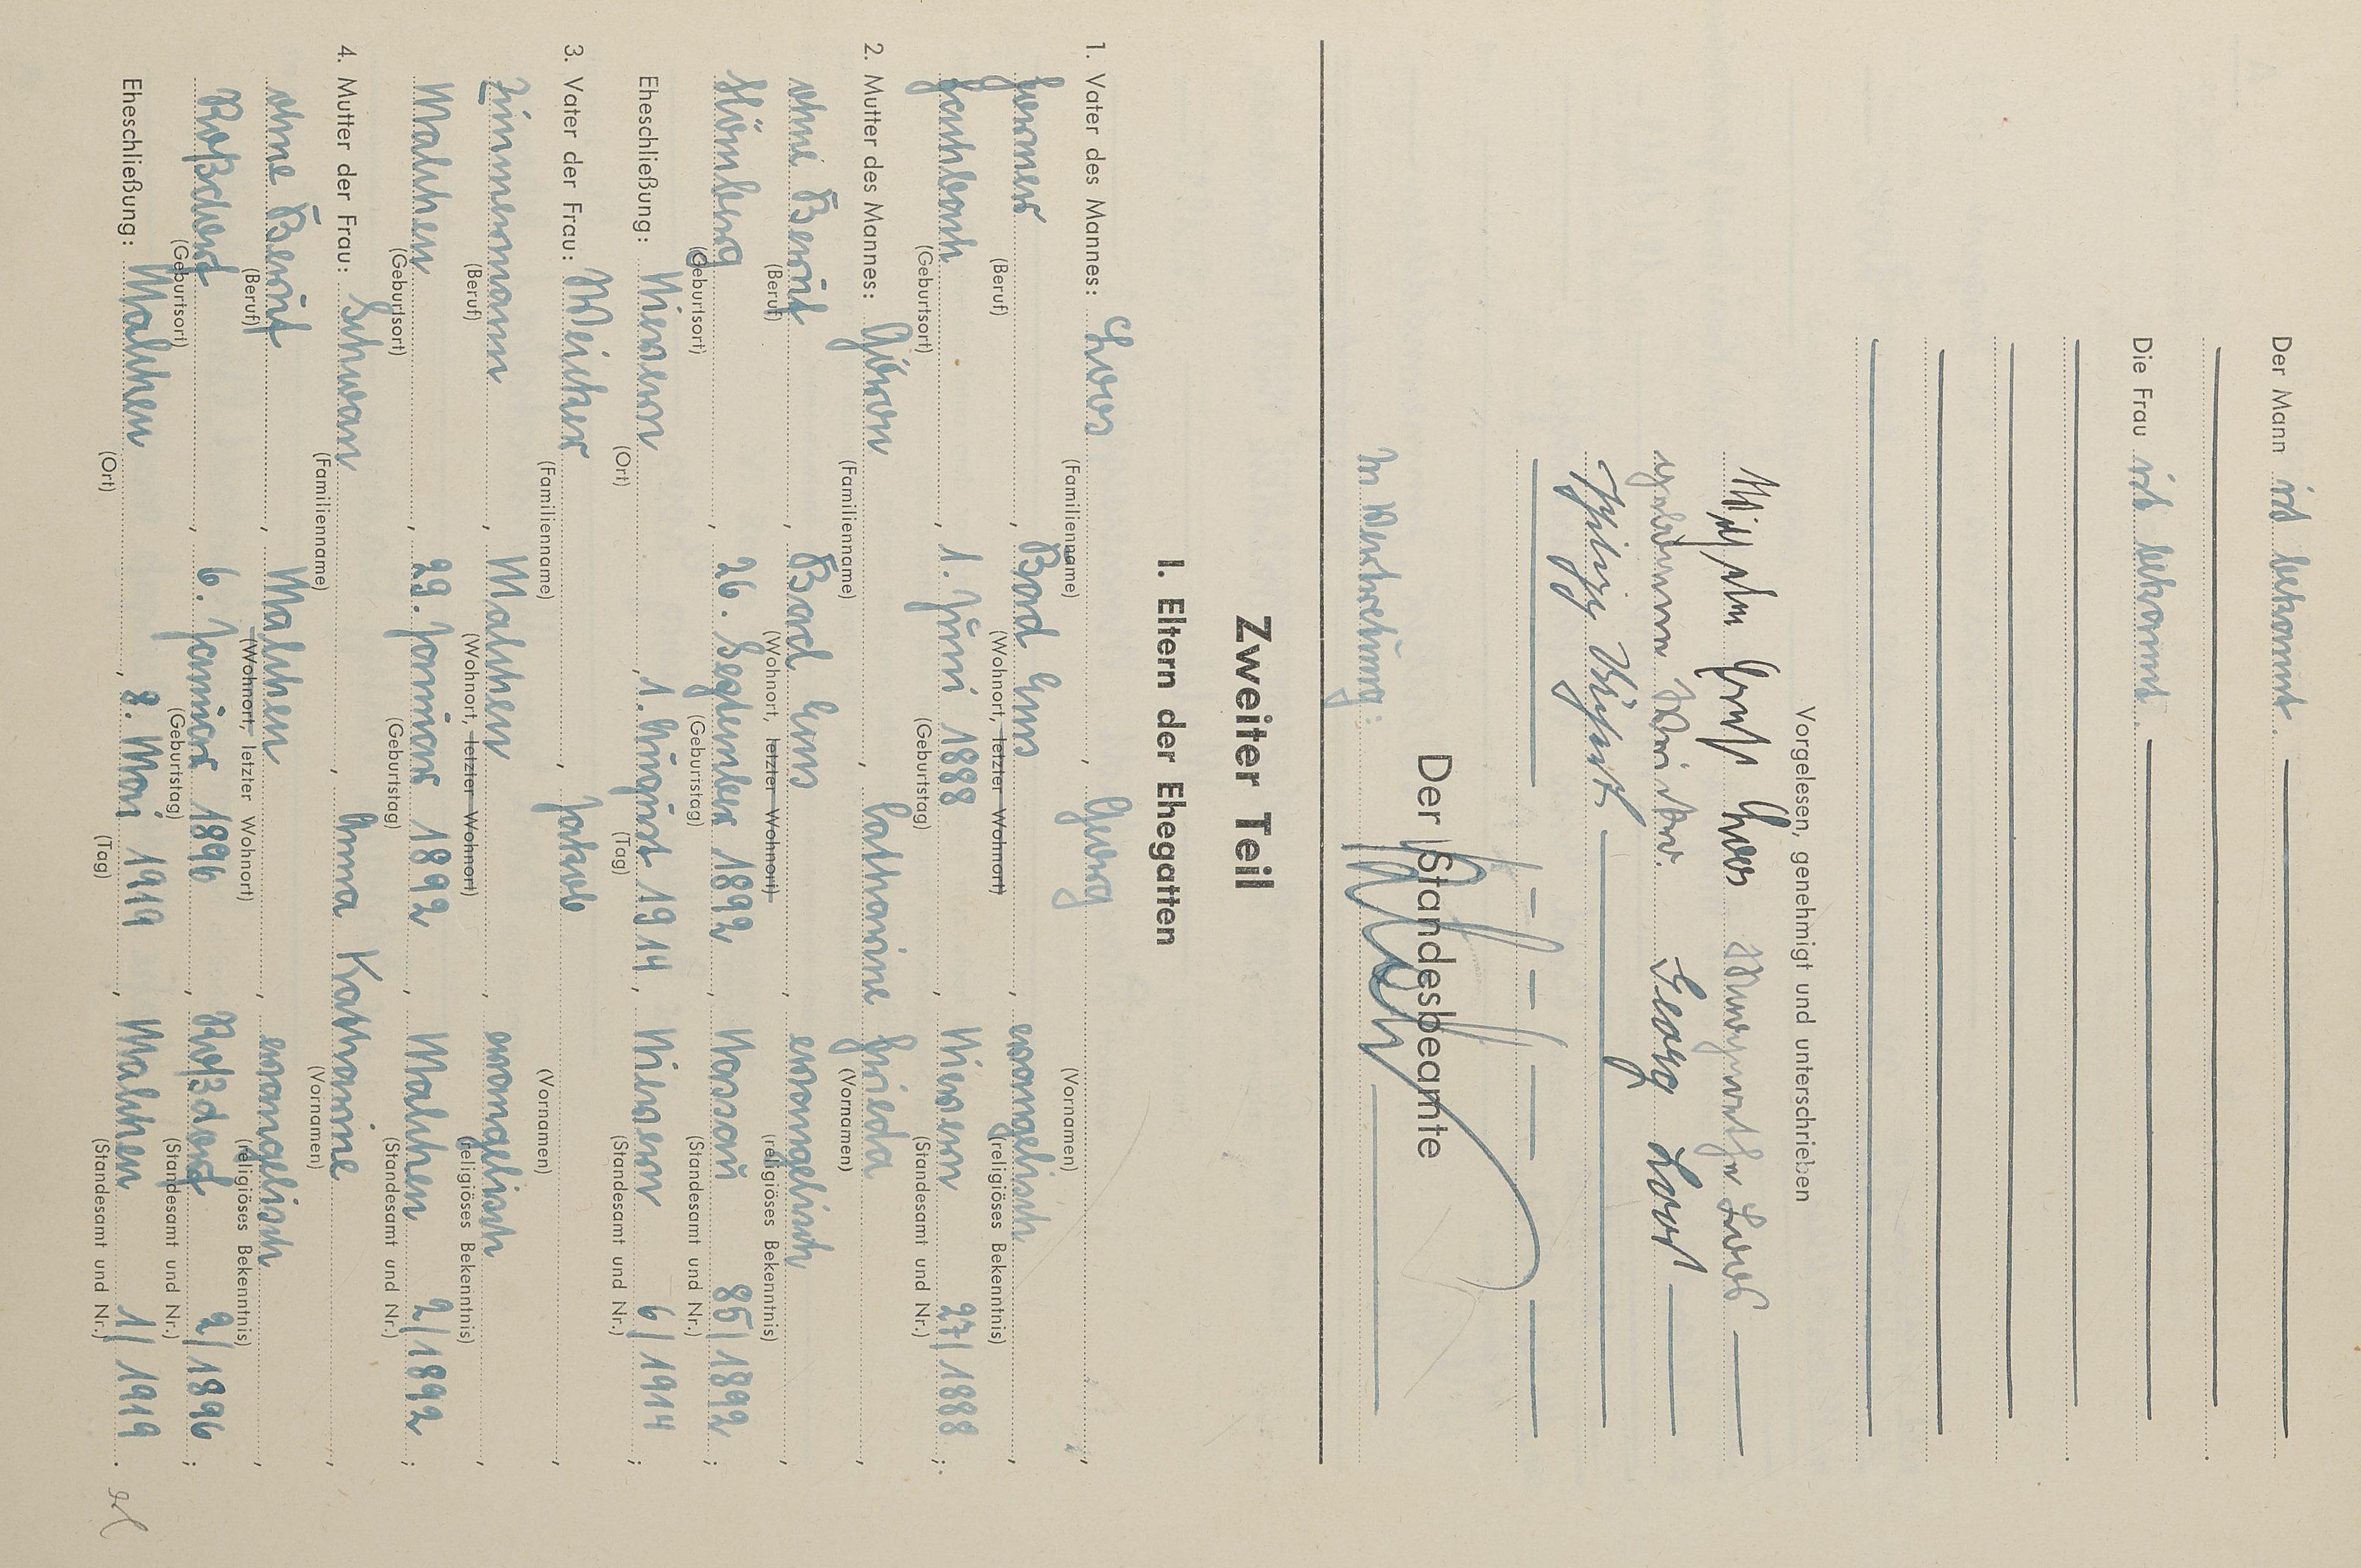 Der Mann ist bekannt.
Die Frau ist bekannt.
Vorgelesen, genehmigt und unterschrieben
Ernst Loos Margarethe Loos
geborene Weicker. Georg Loos
In Vertretung:
Der Standesbeamte
Zweiter Teil
I. Eltern der Ehegatten
1. Vater des Mannes: Loos, Georg,
(Familienname) (Vornamen)
Former, Bad Ems, evangelisch,
(Beruf) (Wohnort, letzter Wohnort) (religiöses Bekenntnis)
1. Juni 1888, Nievern 27/1888;
(Geburtsort) (Geburtstag) (Standesamt und Nr.)
2. Mutter des Mannes: Catharine Frieda,
(Familienname) (Vornamen)
ohne Beruf, Bad Ems, evangelisch,
(Beruf) (Wohnort, letzter Wohnort) (religiöses Bekenntnis)
Hömberg, 26. September 1892, Nassau 85/1892;
(Geburtsort) (Geburtstag) (Standesamt und Nr.)
Eheschließung: Nievern, 1. August 1914, Nievern 6/1914;
(Ort) (Tag) (Standesamt und Nr.)
3. Vater der Frau: Weicker, Jakob,
(Familienname) (Vornamen)
Zimmermann, Malchen, evangelisch,
(Beruf) (Wohnort, letzter Wohnort) (religiöses Bekenntnis)
Malchen, 29. Januar 1892, Malchen 2/1892;
(Geburtsort) (Geburtstag) (Standesamt und Nr.)
4. Mutter der Frau: Schwan, Anna Katharine,
(Familienname) (Vornamen)
ohne Beruf, Malchen, evangelisch,
(Beruf) (Wohnort, letzter Wohnort) (religiöses Bekenntnis)
Roßdorf, 6. Januar 1896, Roßdorf 2/1896;
(Geburtsort) (Geburtstag) (Standesamt und Nr.)
Eheschließung: Malchen, 8. Mai 1919, Malchen 1/1919.
(Ort) (Tag) (Standesamt und Nr.)